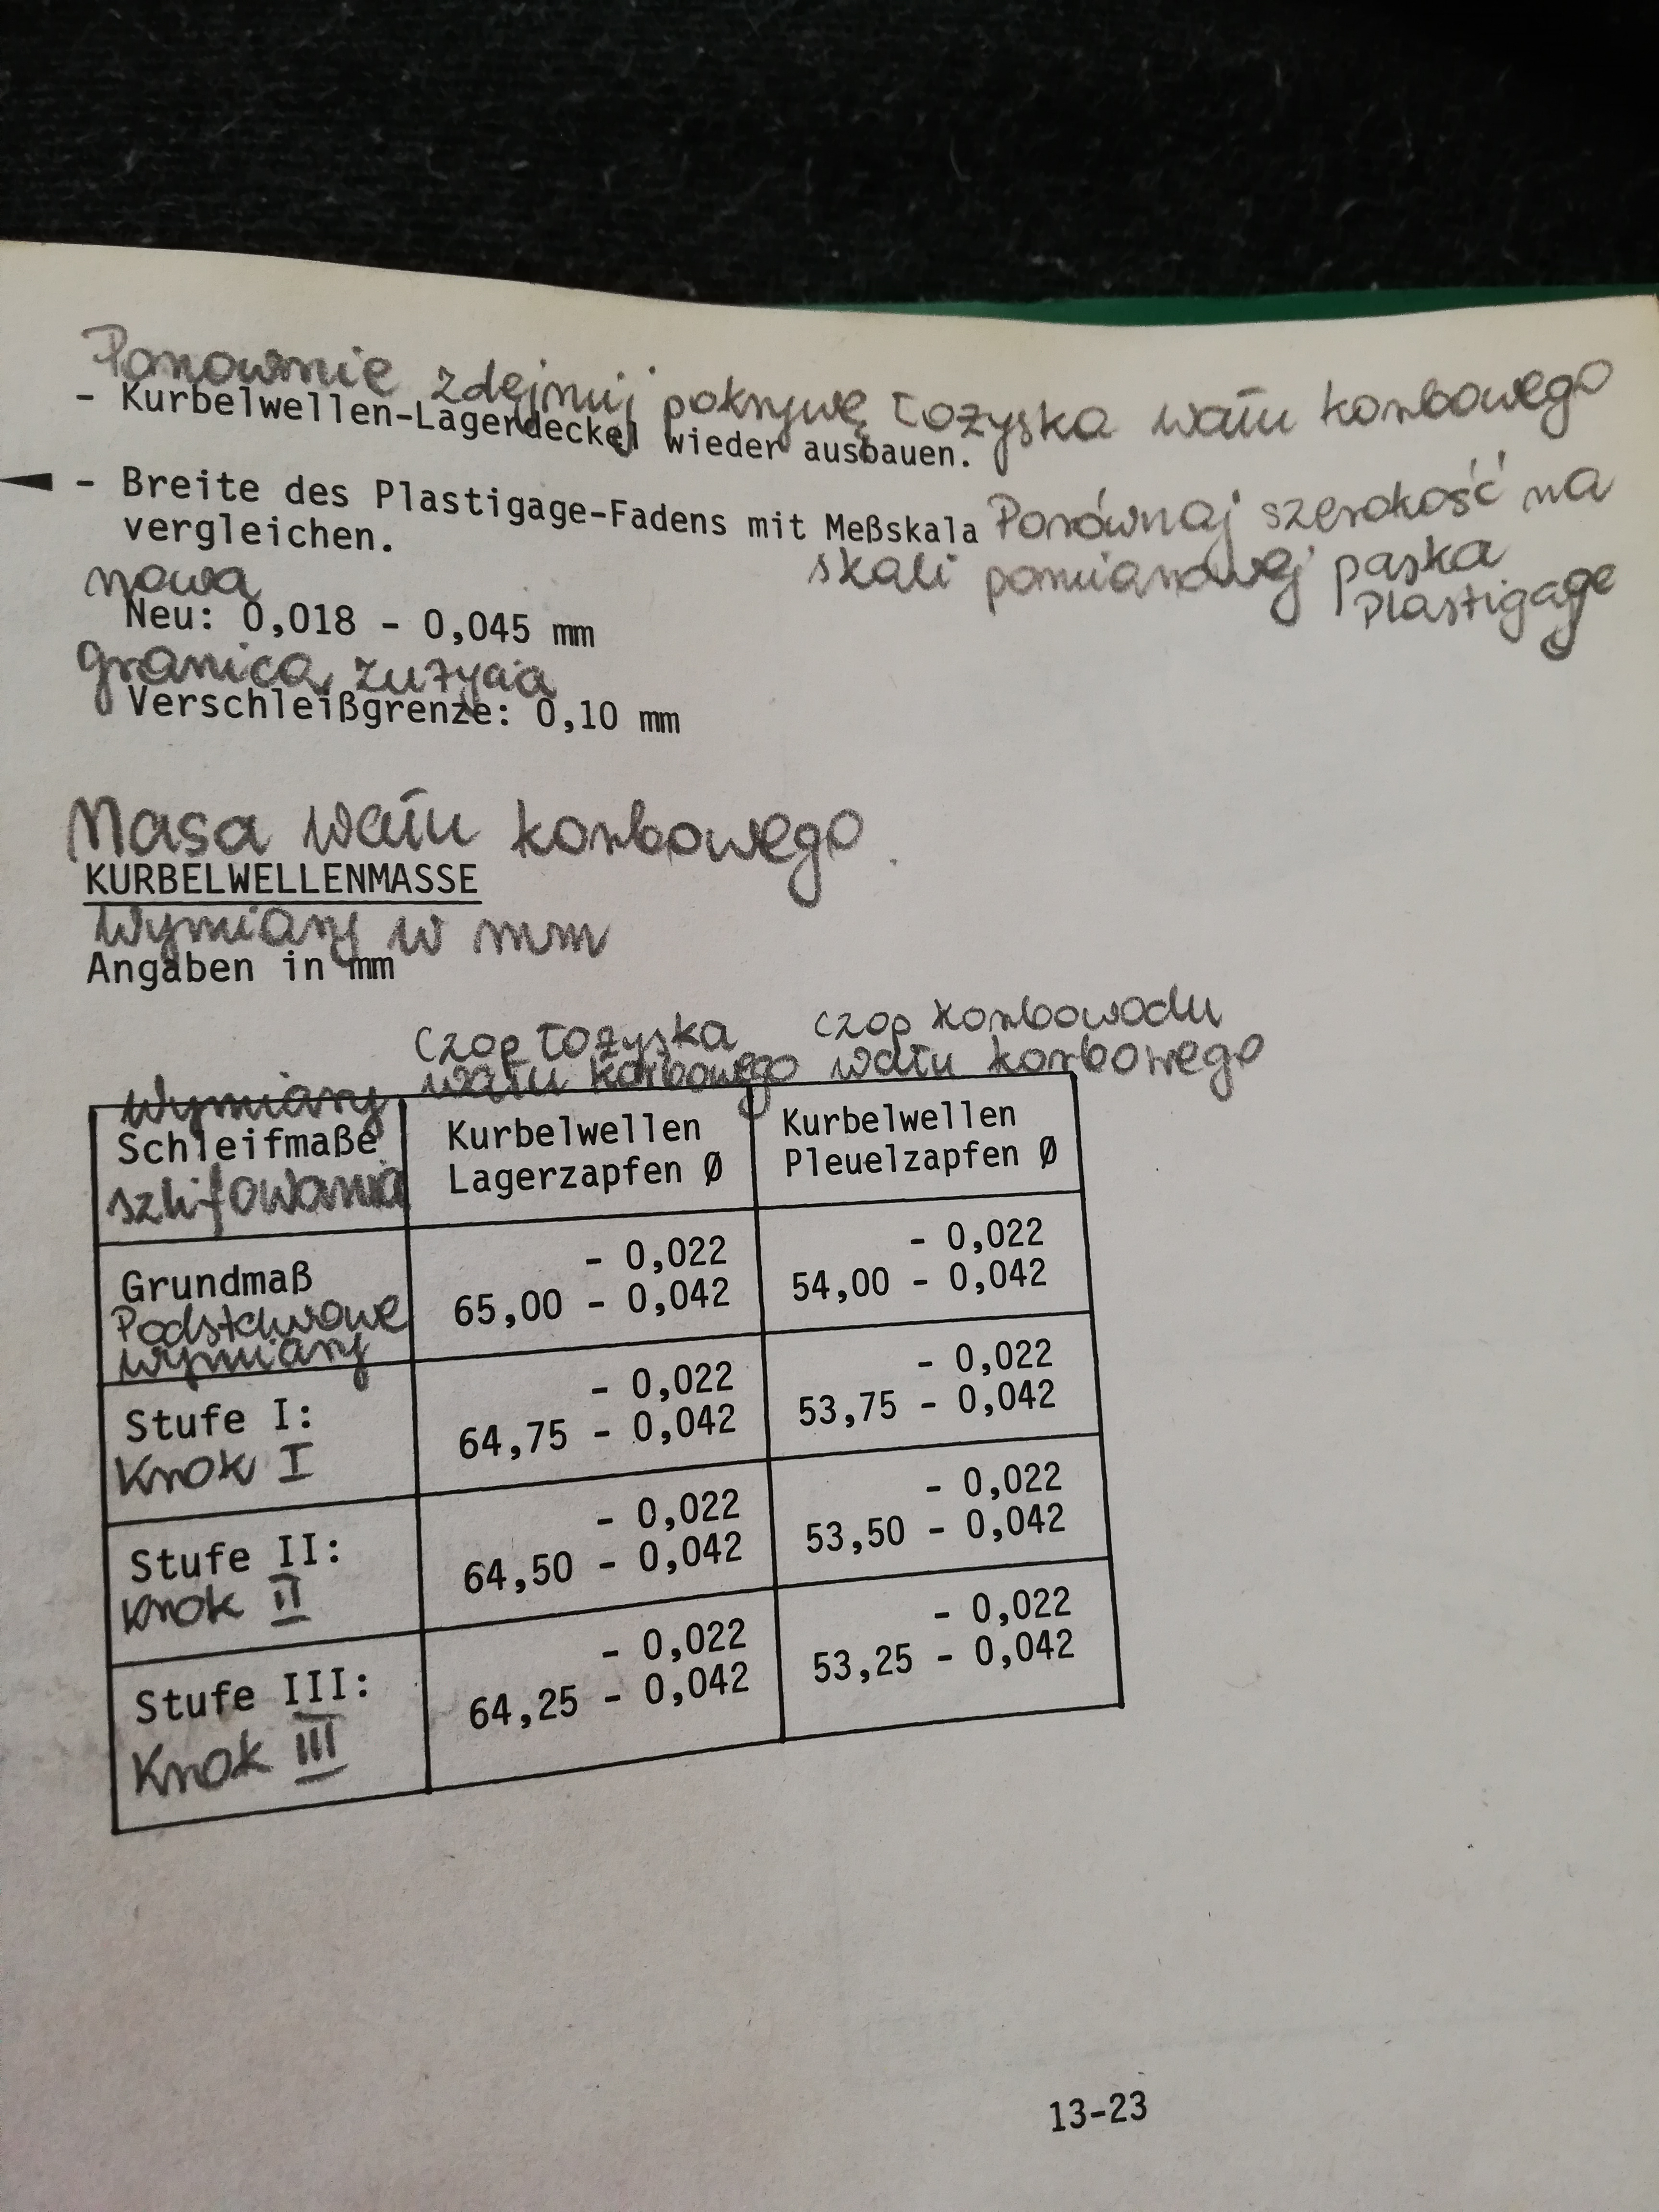 Ponownie zdejmij pokrywę łożyska wału korbowego
- Kurbelwellen-Lagerdeckel wieder ausbauen.
- Breite des Plastigage-Fadens mit Meßskala Porównaj szerokość na
vergleichen. skali pomiarowej paska
Plastigage
nowa
Neu: 0,018 - 0,045 mm
granica zużycia
Verschleißgrenze: 0,10 mm
Masa wału korbowego.
KURBELWELLENMASSE
Wymiary w mm
Angaben in mm
czop łożyska czop korbowodu
wału korbowego wału korbowego
Wymiary
Schleifmaße Kurbelwellen Kurbelwellen
szlifowania Lagerzapfen Ø Pleuelzapfen Ø
- 0,022 - 0,022
Grundmaß 65,00 - 0,042 54,00 - 0,042
Podstawowe
wymiary
- 0,022 - 0,022
Stufe I: 64,75 - 0,042 53,75 - 0,042
Krok I
- 0,022 - 0,022
Stufe II: 64,50 - 0,042 53,50 - 0,042
Krok II
- 0,022 - 0,022
Stufe III: 64,25 - 0,042 53,25 - 0,042
Krok III
13-23